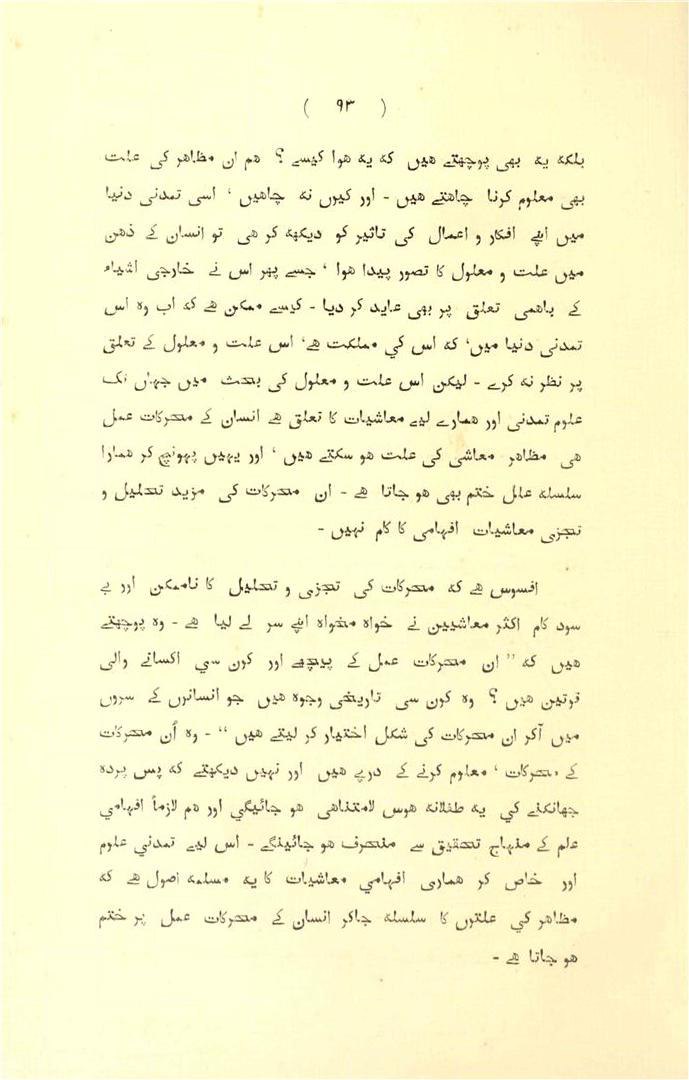 ( ۹۳ )
بلکه یه بھی پوچھتے ھیں که یه ھوا کیسے ؟ ھم ان مظاھر کی علت
بھی معلوم کرنا چاھتے ھیں - اور کیوں نه چاھیں ' اسی تمدنی دنیا
میں اپنے افکار و اعمال کی تاثیر کو دیکھه کر ھی تو انسان کے ذھن
میں علت و معلول کا تصور پیدا ھوا ' جسے پھر اس نے خارجی اشیاء
کے باھمی تعلق پر بھی عاید کر دیا - کیسے ممکن ھے که اب وہ اس
تمدنی دنیا میں' که اس کي مملکت ھے' اس علت و معلول کے تعلق
پر نظر نه کرے - لیکن اس علت و معلول کی بحث میں جہاں تک
علوم تمدنی اور ھمارے لیے معاشیات کا تعلق ھے انسان کے محرکات عمل
ھی مظاھر معاشی کی علت ھو سکتے ھیں ' اور یہیں پہونچ کر ھمارا
سلسله علل ختم بھی ھو جاتا ھے - ان محرکات کی مزید تحلیل و
تجزی معاشیات افہامی کا کام نہیں -
افسوس ھے که محرکات کی تجزی و تحلیل کا ناممکن اور بے
سود کام اکثر معاشیین نے خواہ مخواہ اپنے سر لے لیا ھے - وہ پوچھتے
ھیں که " ان محرکات عمل کے پیچھے اور کون سي اکسانے والی
قوتیں ھیں ؟ وہ کون سی تاریخی وجوہ ھیں جو انسانوں کے سروں
میں آکر ان محرکات کی شکل اختیار کر لیتے ھیں " - وہ اُن محرکات
کے محرکات ' معلوم کرنے کے درپے ھیں اور نہیں دیکھتے که پس پردہ
جھانکنے کي یه طفلانه ھوس لامتناھی ھو جائیگي اور ھم لازماً افہامي
علم کے منہاج تحقیق سے منحرف ھو جائینگے - اس لیے تمدني علوم
اور خاص کر ھماری افہامي معاشیات کا یه مسلمه اصول ھے که
مظاھر کي علتوں کا سلسله جاکر انسان کے محرکات عمل پر ختم
ھو جاتا ھے -